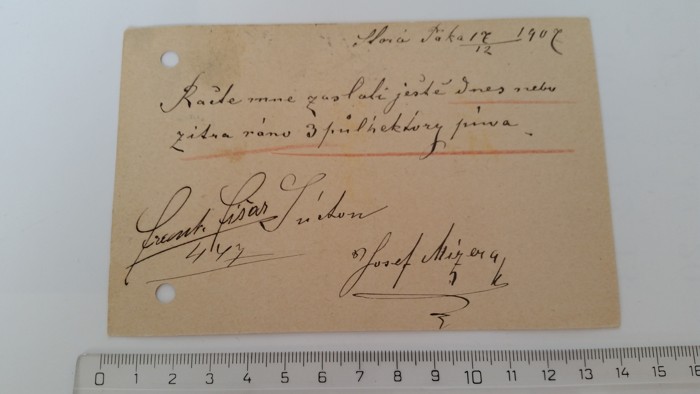 Stará Paka 17/12 1907
Račte mne zaslati ještě dnes nebo
zitra ráno 3 půlhektory piwa
Frant. Fišar
447
Josef Mizera
0 1 2 3 4 5 6 7 8 9 10 11 12 13 14 15 16